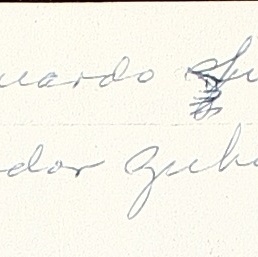 uardo
dor Zub